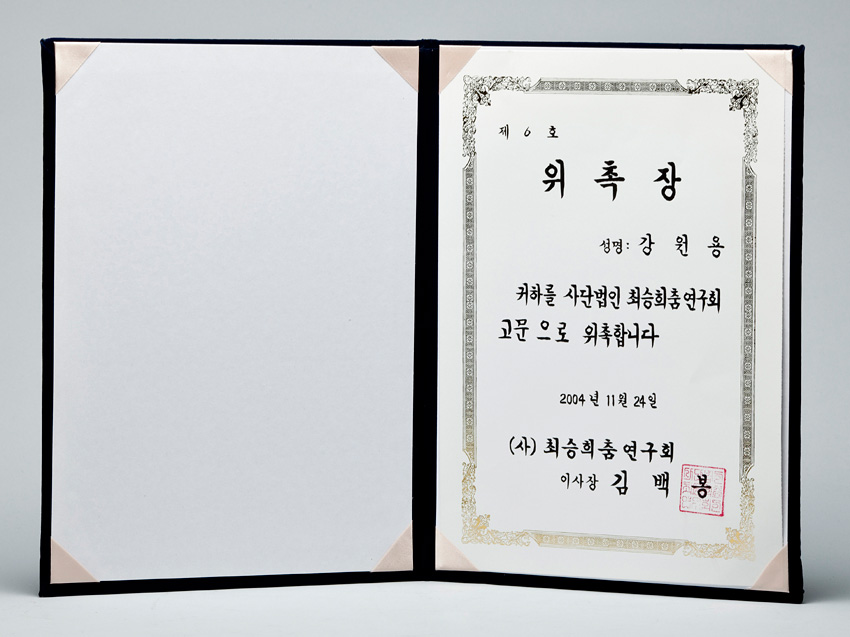 제 6 호
위 촉 장
성명: 강 원 용
귀하를 사단법인 최승희춤연구회
고문으로 위촉합니다
2004년 11월 24일
(사) 최승희춤연구회
이사장 김 백 봉